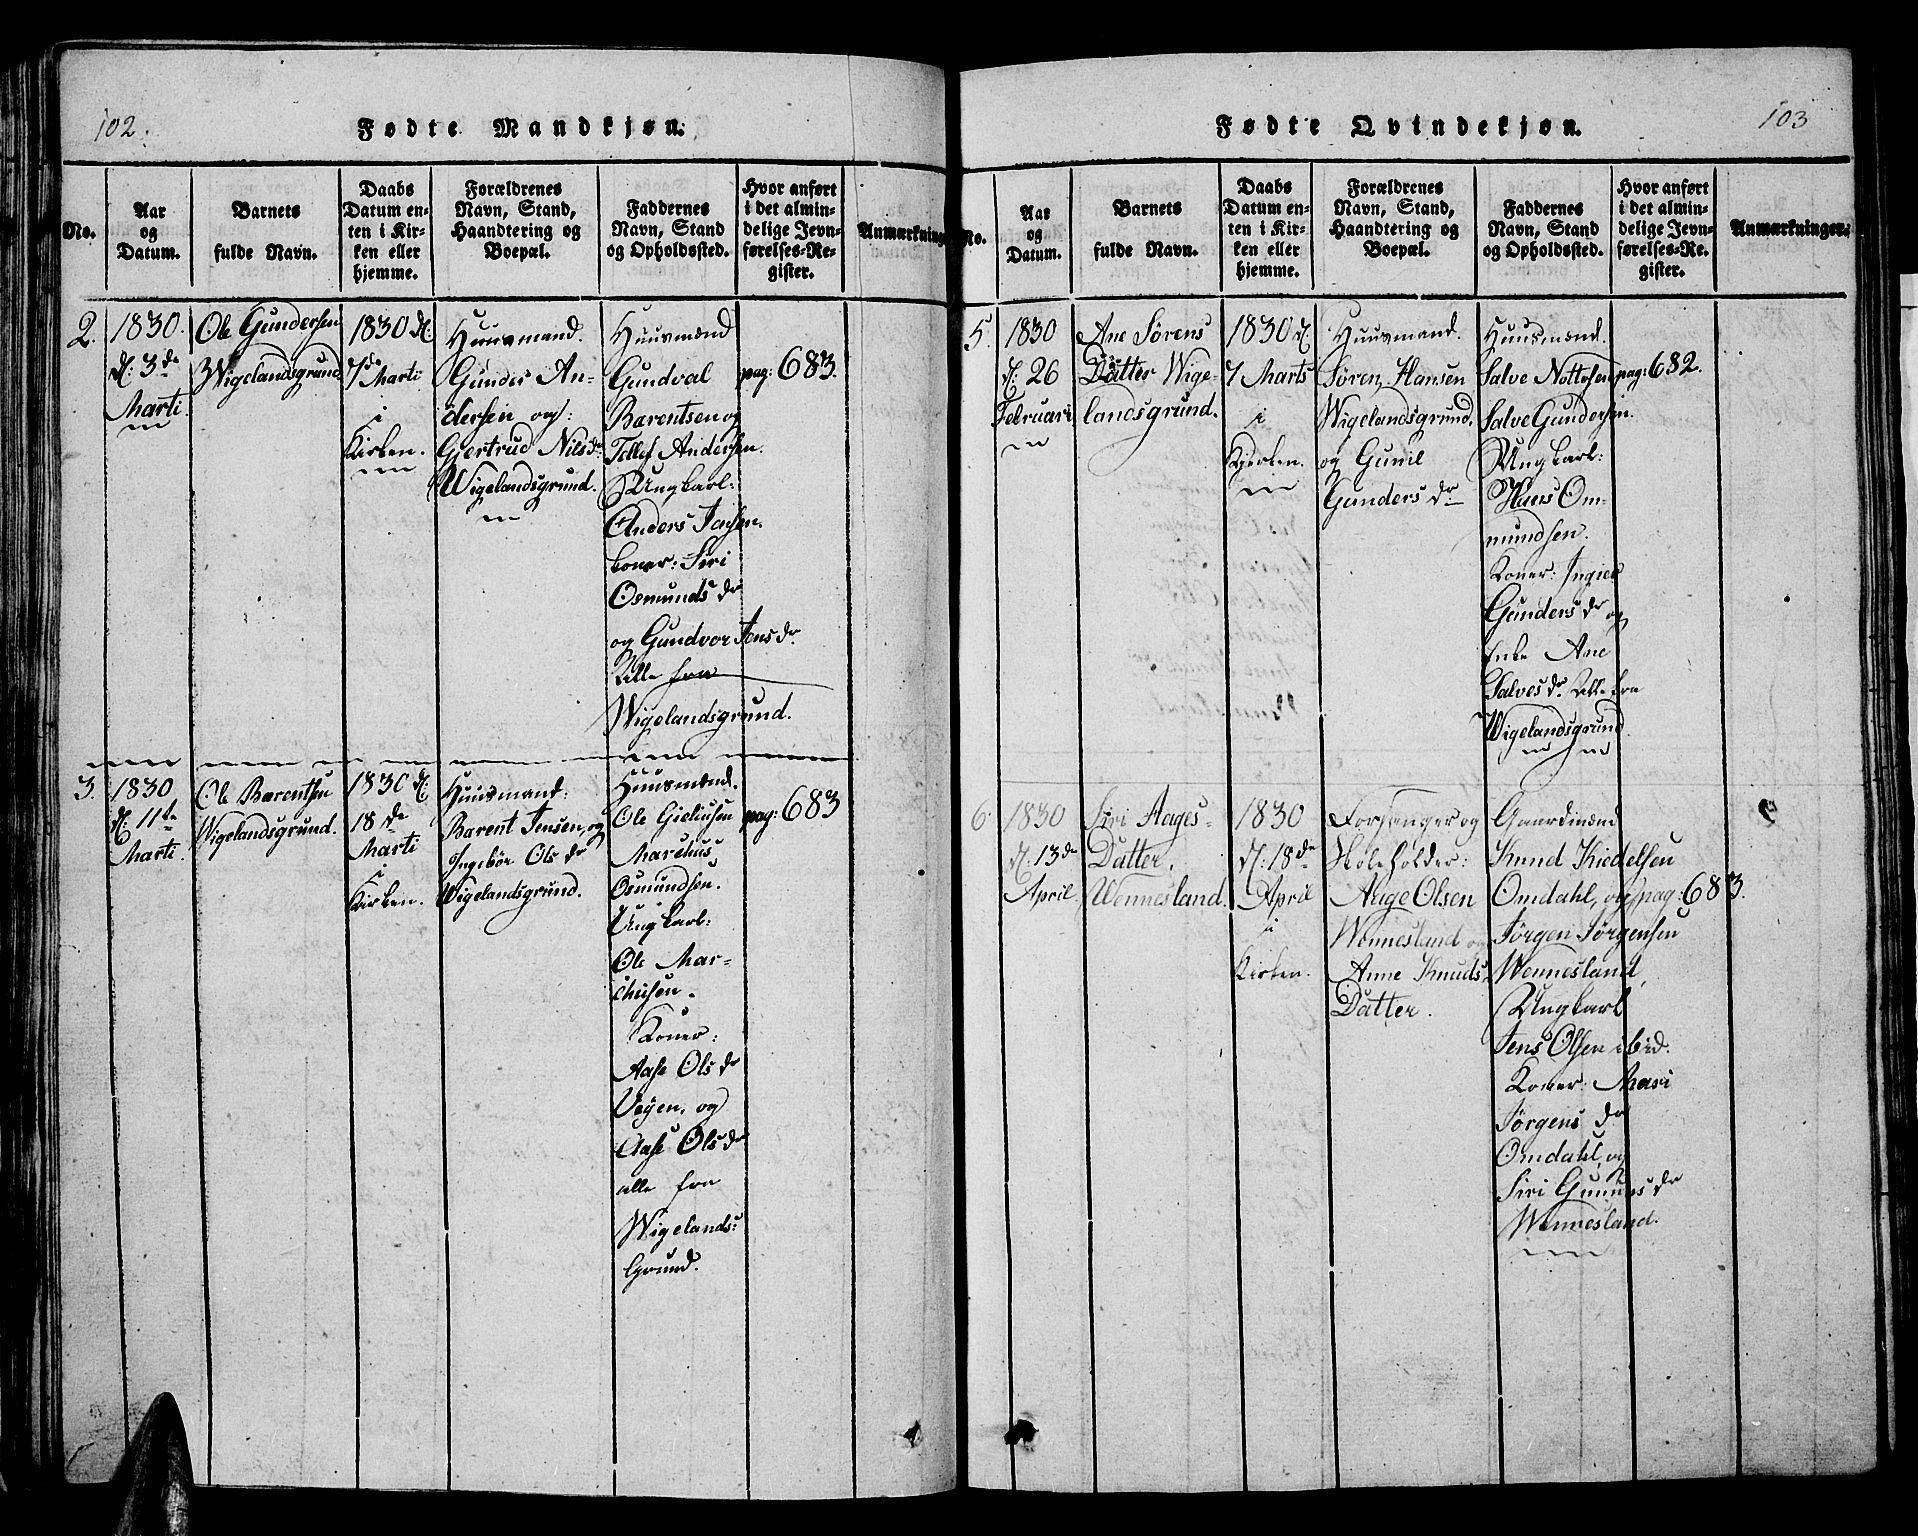 102.
Fødte Mandkjøn.
No.
Aar
og
Datum.
Barnets
fulde Navn.
Daabs
Datum en-
ten i Kir-
ken eller
hjemme.
Forældrenes
Navn, Stand,
Haandtering og
Boepæl.
Faddernes
Navn, Stand
og Opholdssted.
Hvor anført
i det almin-
delige Jevn-
førelses-Re-
gister.
Anmærkning
2.
1830.
d: 3de
Marti.
Ole Gundersen
Wigelandsgrund
1830 d:
7de Marti
i
Kirken.
Huusmand.
Gunder An-
dersen og:
Giertrud Nilsdr
Wigelandsgrund.
Huusmænd
Gundval
Barentsen og
Tellef Andersen.
Ungkarl:
Anders Jensen.
koner: Siri
Osmunds dr
og Gundvor Jens dr.
Alle fra
Wigelandsgrund.
pag: 683.
3.
1830
d: 11te
Marti.
Ole Barentsen
Wigelandsgrund.
1830 d:
18de
Marti
i
Kirken.
Huusmand:
Barent Jensen, og
Ingebör Ols dr
Wigelandsgrund.
Huusmænd.
Ole
Marchus
Osmundsen.
Ungkarl:
Ole Mar-
chusen.
Koner:
Aase Ols dr
Vejen, og
Aase Ols dr
alle fra
Wigelands:
Grund.
pag: 683
103
Fødte Qvindekjøn.
No.
Aar
og
Datum.
Barnets
fulde Navn.
Daabs
Datum en-
ten i Kir-
ken eller
hjemme.
Forældrenes
Navn, Stand,
Haandtering og
Boepæl.
Faddernes
Navn, Stand
og Opholdssted.
Hvor anført
i det almin-
delige Jevn-
førelses-Re-
gister.
Anmærkninger.
5.
1830
d: 26
Februari
Ane Sörens
Datter Wige-
landsgrund.
1830 d:
7 Marts
i
Kjerken.
Huusmand.
Søren Hansen
Wigelandsgrund.
og Gunil
Gunders dr
Huusmænd.
Salve
Salve Gundersen.
Ungkarl:
Hans Om-
mundsen.
Koner: Ingier
Gunders dr og
Enke Ane
Salves dr. Alle fra
Wigelandsgrund.
pag: 682.
6.
1830
d: 13de
April
Siri Aages-
Datter.
Wennesland.
1830
d: 18de
April
i
Kirken.
Forsanger og
Skoleholder:
Aage Olsen
Wennesland og
Anne Knuds-
Datter.
Gaardmænd
Knud Kiedelsen
Omdahl, og
Jörgen Jörgensen
Wennesland,
Ungkarl
Jens Olsen ibid.
Koner: Mari
Jörgens dr
Omdahl, og
Siri dr
Wennesland.
pag: 683.